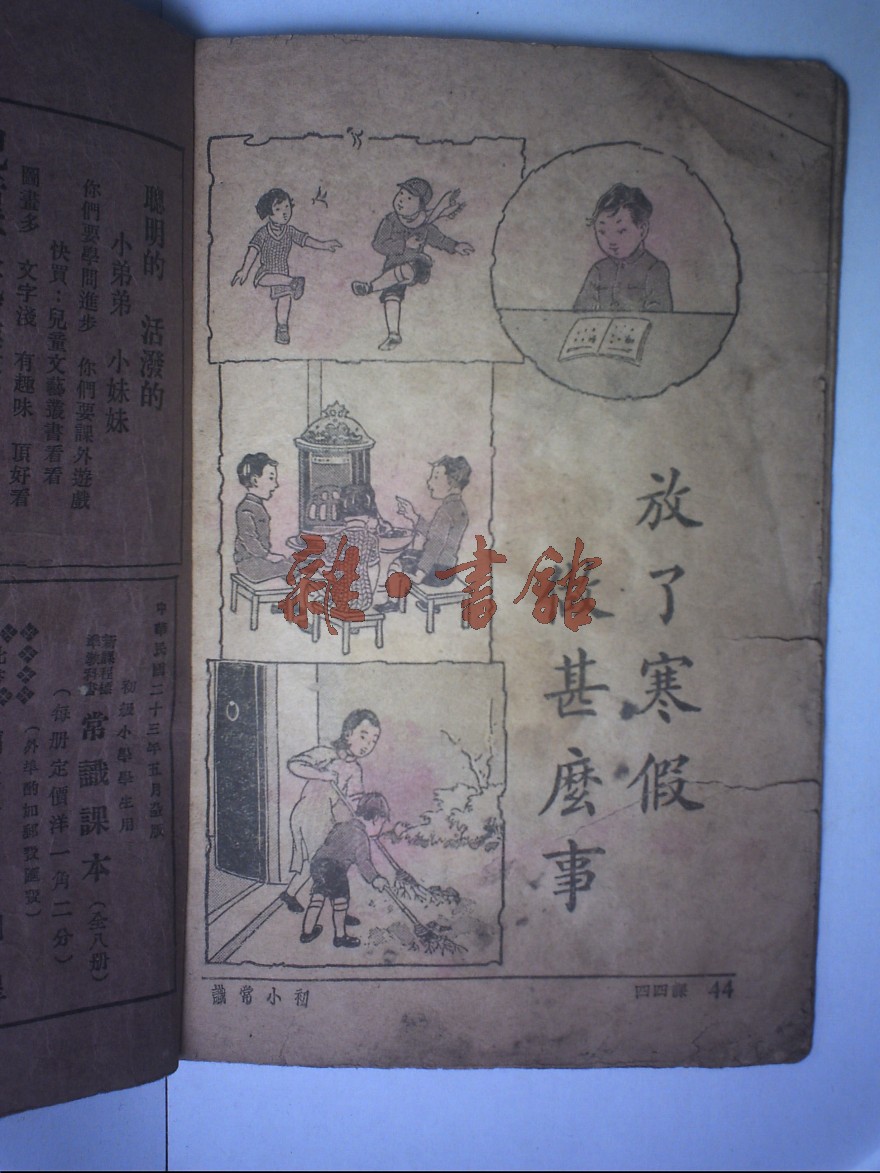 放了寒假
做甚麼事
初小常識
四四課 44
雜·書館
聰明的 活潑的
小弟弟 小妹妹
你們要學問進步 你們要課外遊戲
快買：兒童文藝叢書看看
圖畫多 文字淺 有趣味 頂好看
中華民國二十三年五月
初級小學學生用
新課程標準教科書
常識課本（全八册）
（每册定價洋一角二分）
（外埠酌加郵費匯費）